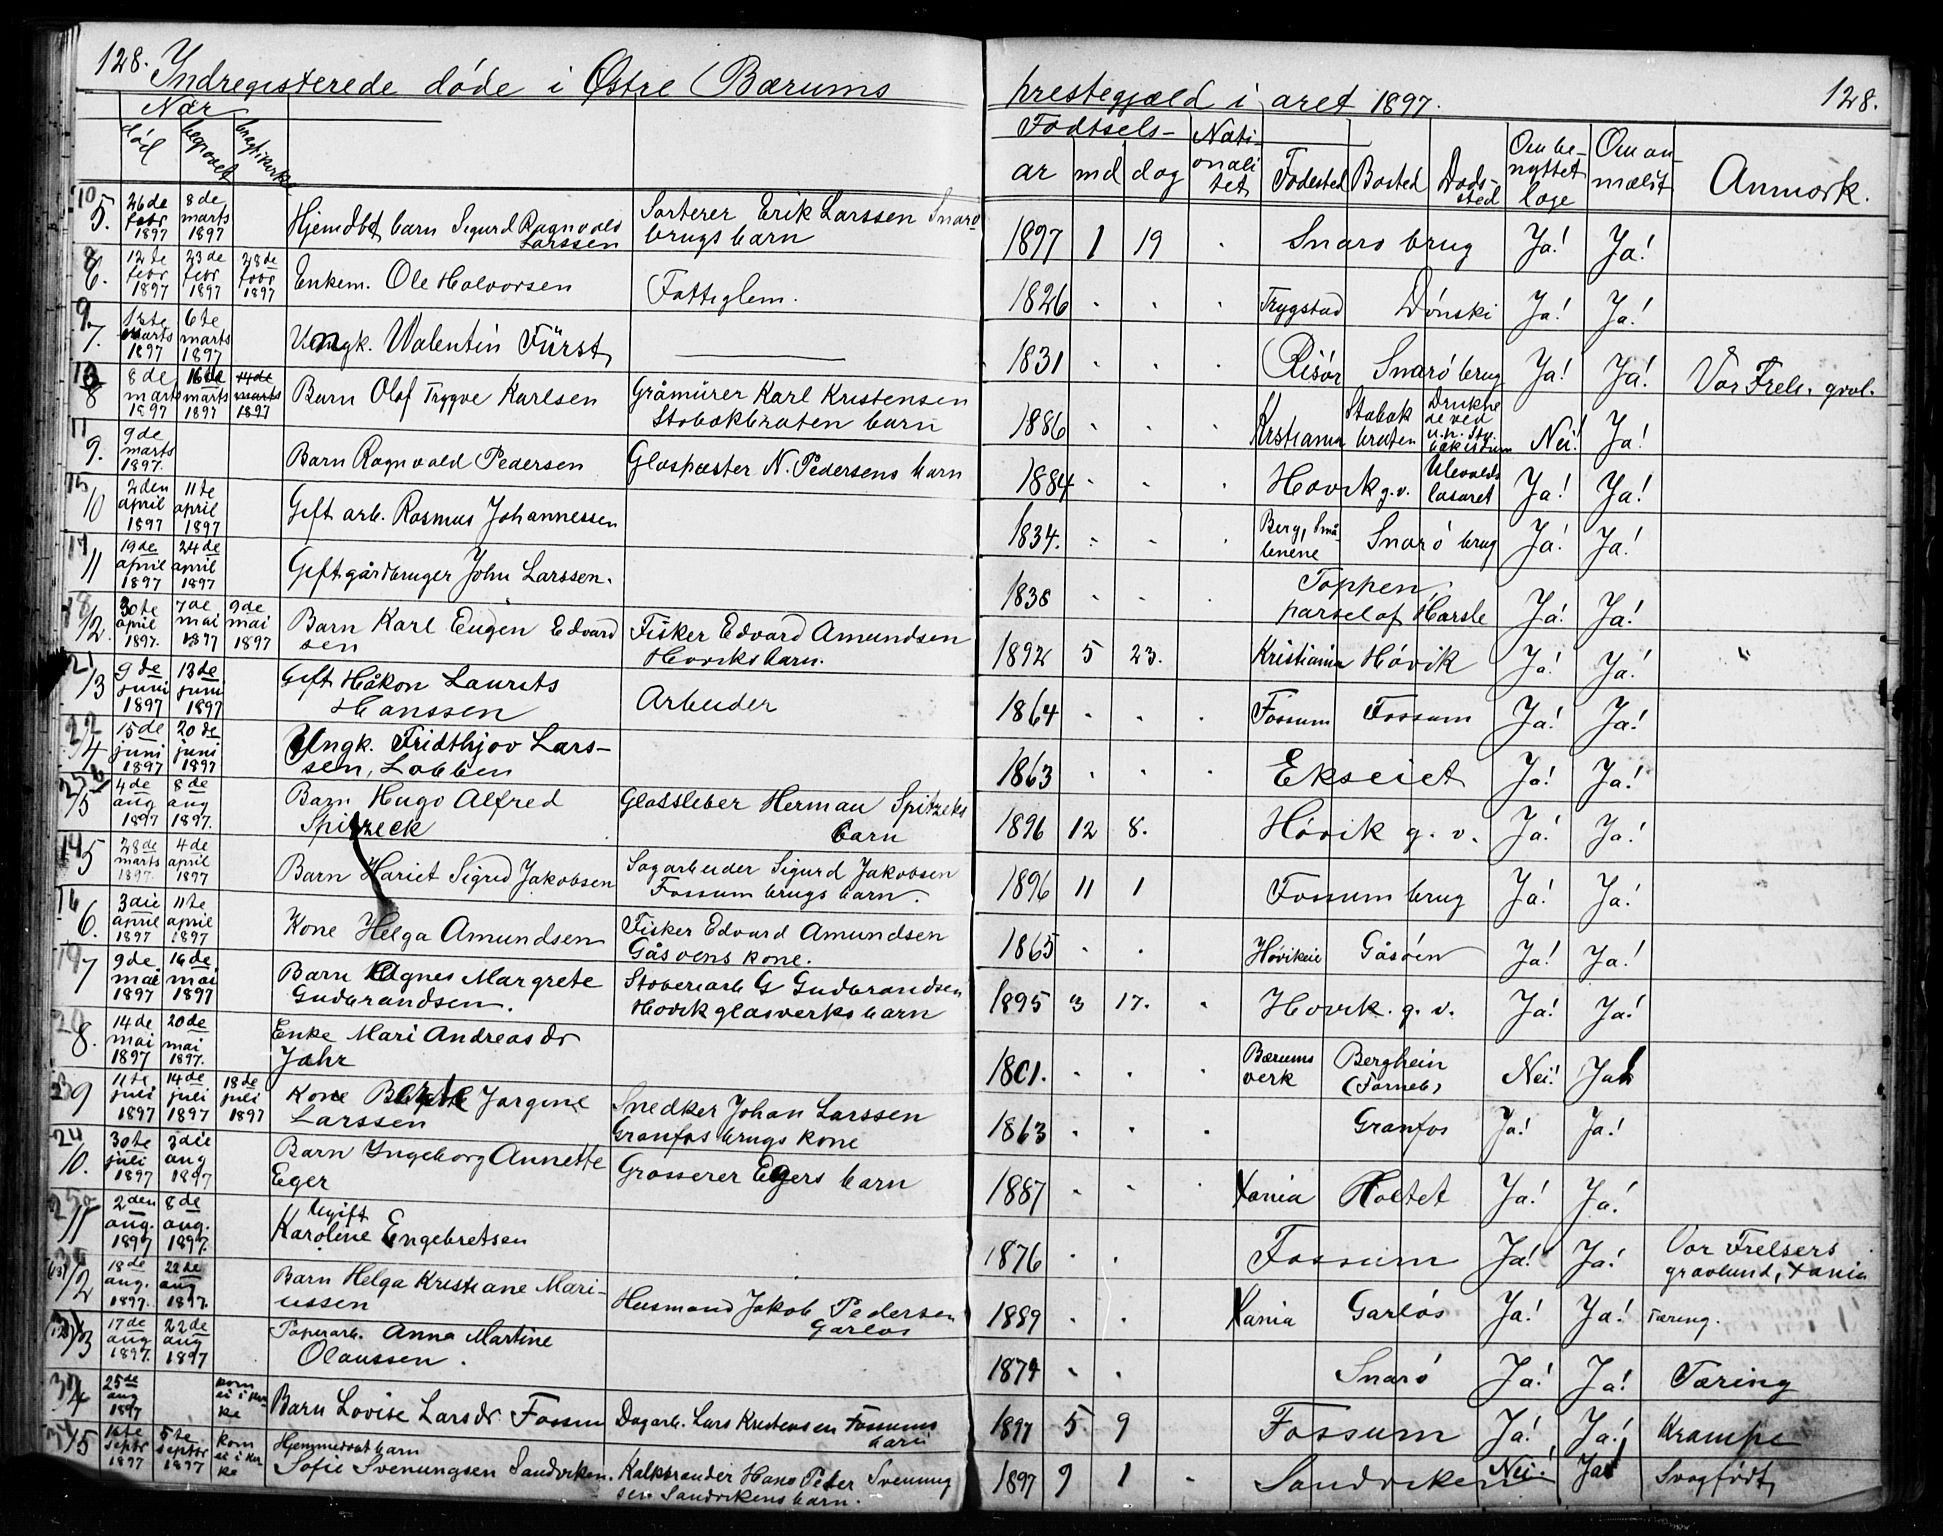 128. Indregisterede døde i Østre Bærums prestegjæld i aret 1897. 128.
Nær
død begravet bragt i kirke
Fødsels-
ar md dag Nati-onali-tet Fødested Bosted Døds-sted Om be-nyttet læge Om an-mælit Anmærk.
5. 26de febr 1897 8de marts 1897 Hjemdbt barn Sigurd Ragnvald Larssen Sorterer Erik Larssen Snarø-brugs barn 1897 1 19 Snarø brug Ja! Ja!
8 6. 12te febr 1897 23de febr 1897 28de febr 1897 Enkem. Ole Halvorsen Fattiglem. 1826 Trygstad Dønski Ja! Ja!
9 7. 1ste marts 1897 6te marts 1897 Ungk. Walentin Fürst 1831 Risør Snarø brug Ja! Ja! Vor Frels. gravl.
8 8de marts 1897 16de marts 1897 14de marts 1897 Barn Olaf Trygve Karlsen Gråmürer Karl Kristensen Stabækbraten barn 1886 Krstiania Stabæk braten Drukne de ved Nei! Ja!
11 9. 9de marts 1897. Barn Ragnvald Pedersen Glaspuster N. Pedersens barn 1884 Høvik g.v. Ulevolds lasaret Ja! Ja!
15 10 2den april 1897 11te april 1897 Gift arb. Rasmus Johannessen 1834. Berg, Små-lenene Snarø brug Ja! Ja!
17 11 19de april 1897 24de april 1897 Gift gårdbruger John Larssen. 1838 Toppen, parsel af Harsle Ja! Ja!
18 12. 30te april 1897. 7de mai 1897 9de mai 1897 Barn Karl Eugen Edvardsen Fisker Edvard Amundsen Høviks barn. 1892 5 23. Kristiania Høvik Ja! Ja! "
21 13 9de juni 1897 13de juni 1897 Gift Håkon Laurits Hanssen Arbeider 1864 Fossum Fossum Ja! Ja!
22 14 15de juni 1897 20de juni 1897 Ungk. Fridthjov Lars-sen, Løkken 1863 Ekseiet Ja! Ja!
15 4de aug 1897 8de aug 1897. Barn Hugo Alfred Spitzeck Glassleber Herman Spitzeks barn 1896 12 8. Høvik g. v. Ja! Ja!
14 5 28de marts 1897. 4de april 1897 Barn Hariet Sigrid Jakobsen Sagarbeider Sigurd Jakobsen Fossum brugs barn. 1896 11 1 Fossum brug Ja! Ja!
16 6. 3die april 1897 11te april 1897 Kone Helga Amundsen Fisker Edvard Amundsen Gåsøens kone. 1865 Høvikeie Gåsøen Ja! Ja!
19 7 9de mai 1897 16de mai 1897 Barn Agnes Margrete Gudbrandsen. Støberiarb G Gudbrandsen Høvik glasverks barn 1895 3 17. Høvik. g. v. Ja! Ja!
20 8. 14de mai 1897 20de mai 1897. Enke Mari Andreasdr Jahr 1801. Bærums verk Berghein (Fornebu) Nei! Ja!
23 9 11te juli 1897 14de juli 1897 18de juli 1897 Kone Berte Jørgine Larssen Snedker Johan Larssen Granfos brugs kone 1863 Granfos Ja! Ja!
24 10. 30te juli 1897 3die aug 1897 Barn Ingeborg Annette Eger Grosserer Egers barn 1887 Xania Holtet Ja! Ja!
11 2den aug. 1897 8de aug. 1897. Ugift Karoline Engebretsen 1876 Fossum Ja! Ja! Vor Frelsers gravlund, Xania
12 18de aug. 1897. 22de aug 1897. Barn Helga Kristiane Mari-ussen Husmand Jakob Pedersen Garløs 1889 Xania Garløs Ja! Ja! Tæring.
13 17de aug 1897. 22de aug 1897 Papirarb. Anna Martine Olaussen. 1874 Snarø Ja! Ja! Tæring
14 25de aug 1897 kom ei i kir-ke Barn Lovise Larsdr. Fossum Dagarb. Lars Kristensen Fossums barn 1897 5 9 Fossum Ja! Ja! Krampe
15 1ste septbr 1897 5te septbr 1897 kom ei i kir-ke Hjemmedøbt barn Sofie Svenungsen Sandviken. Kalkbrænder Hans Peter Svenung-sen Sandvikens barn. 1897 9 1 Sandviken Nei! Ja! Svagfødt